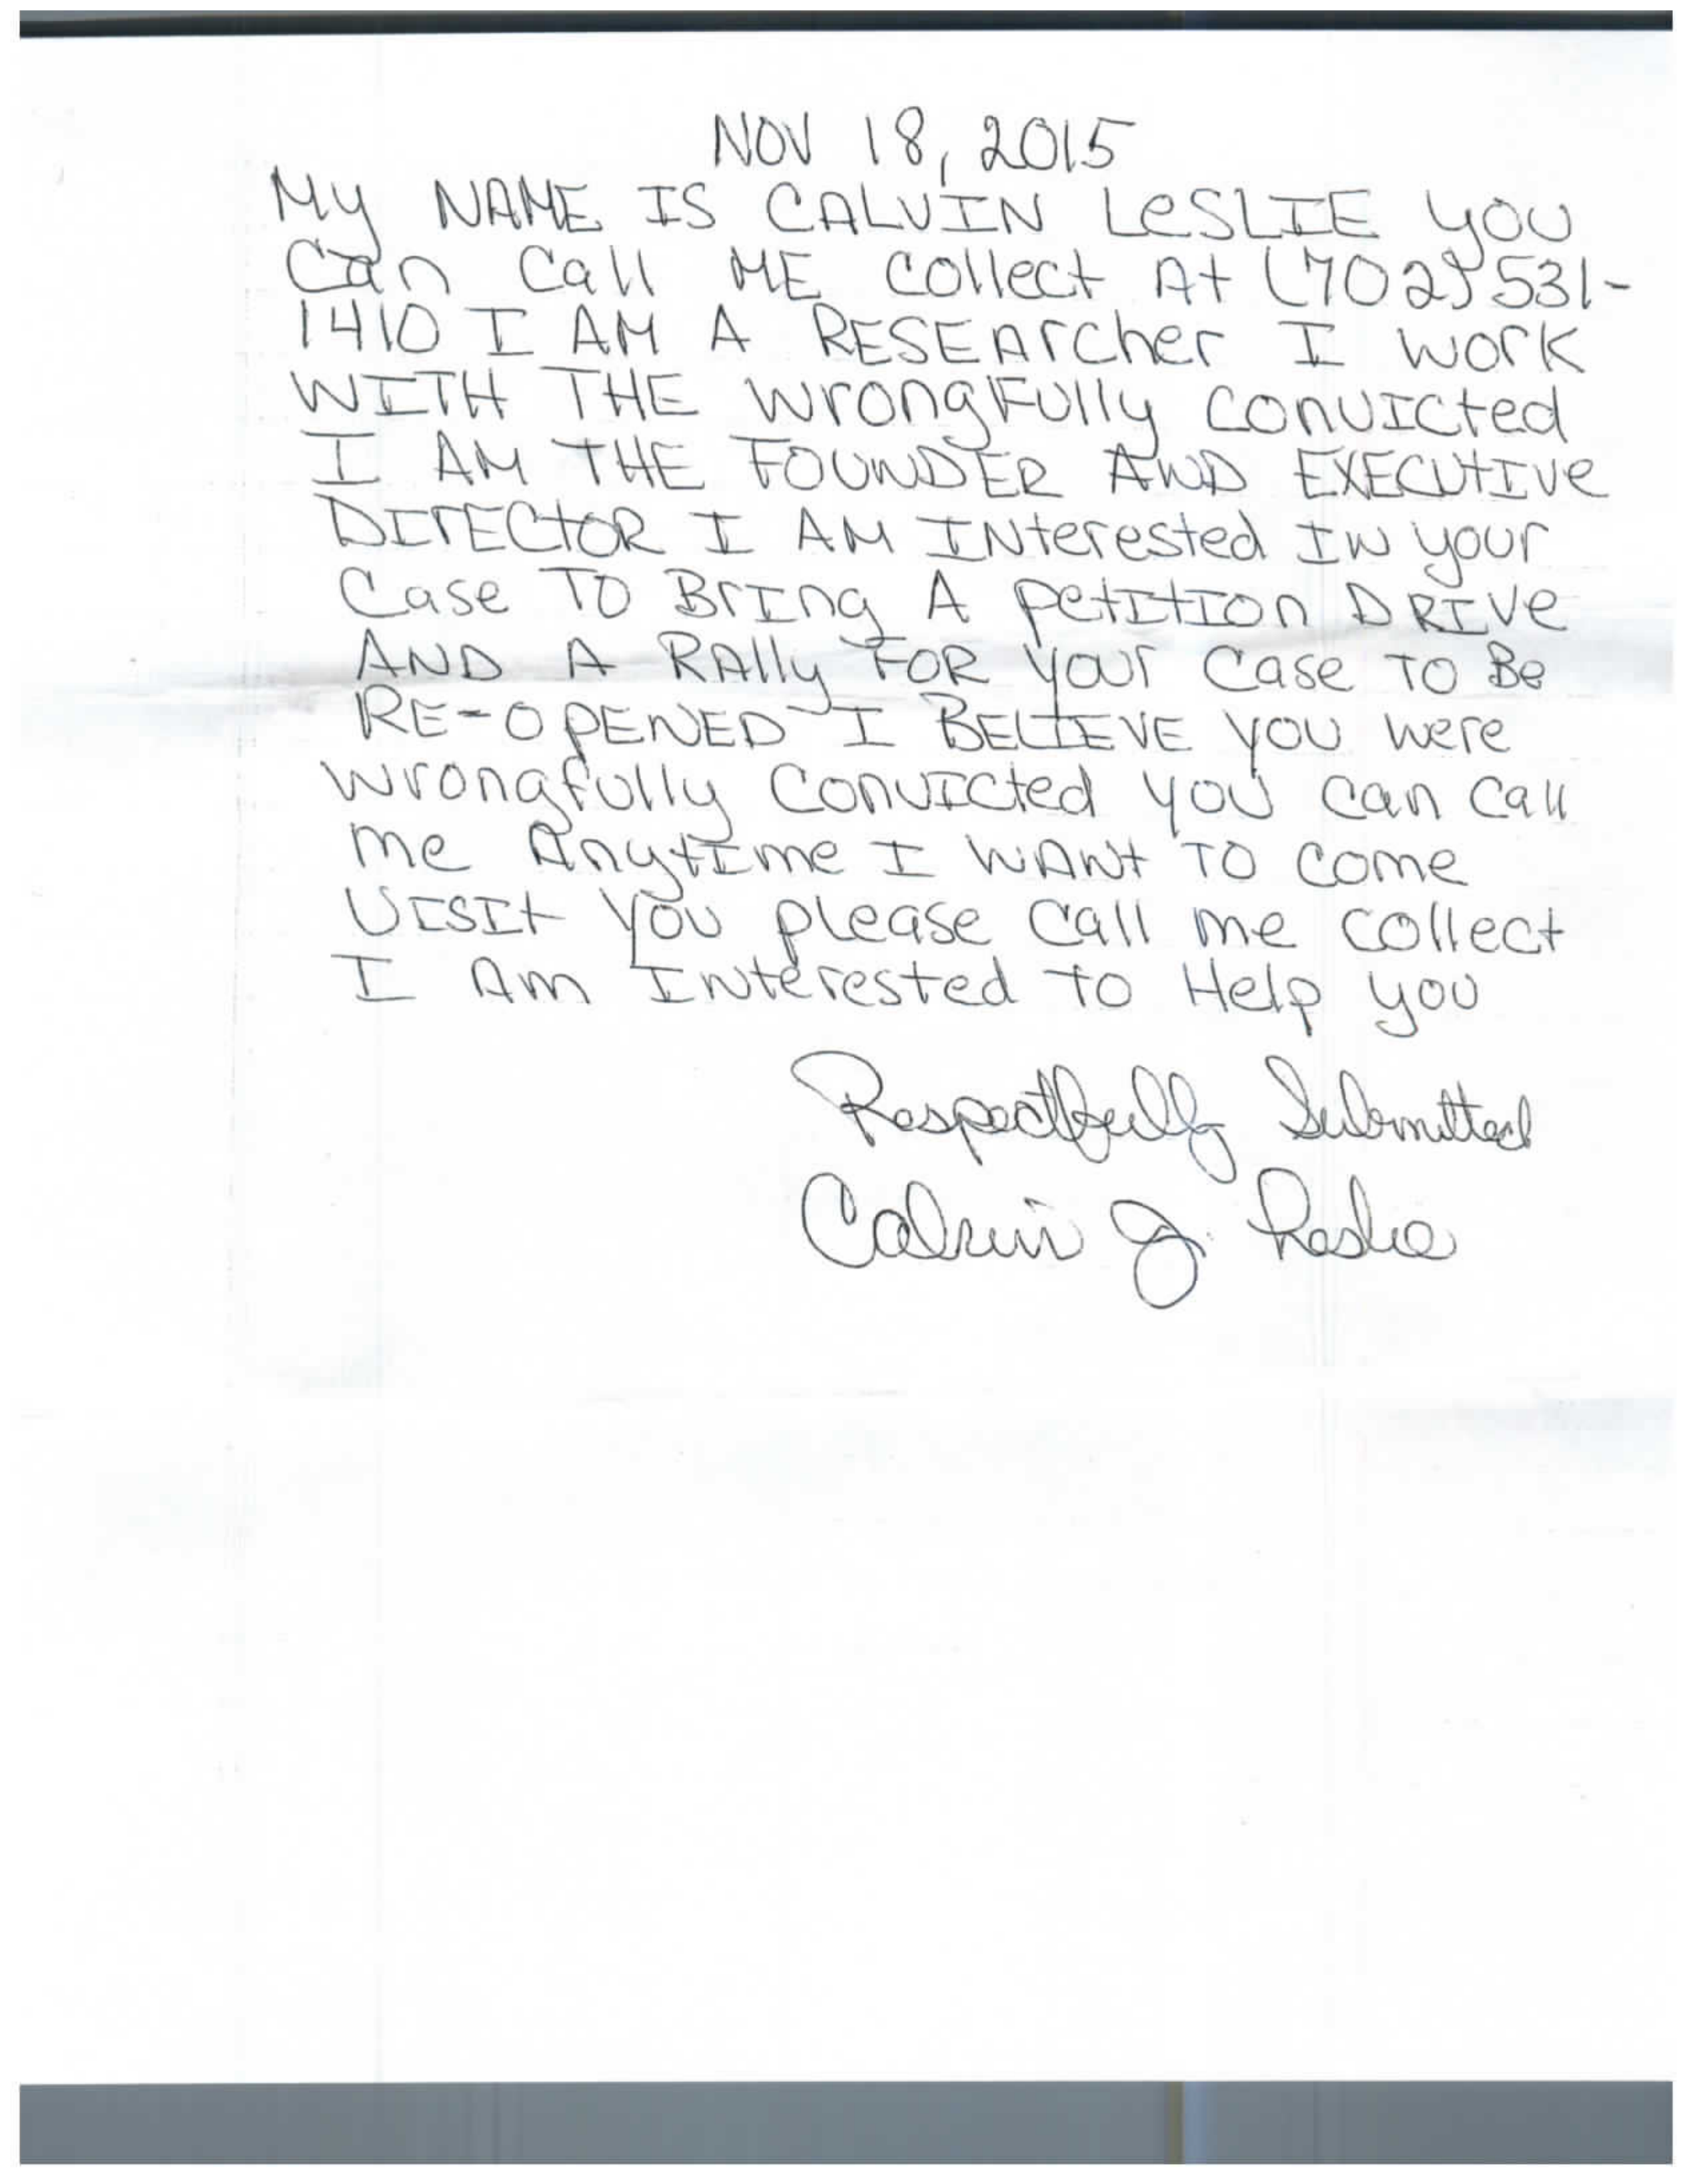 NOV 18, 2015
My NAME IS CALVIN LeSLIE you
Can Call ME collect At (702) 531-
1410 I AM A RESEArcher I work
WITH THE wrongFully convIcted
I AM THE FOUNDER AND EXECUtIve
DIrECtOR I AM INterested IN your
Case TO BrIng A petItIon DRIVe
AND A RAlly FOR your case TO Be
RE-OPENED I BELIEVE you were
wrongfully convIcted you can call
me AnytIme I WANt TO come
VISIt you please call me collect
I Am INterested to Help you
Respectfully Submitted
Calvin J. Leslie